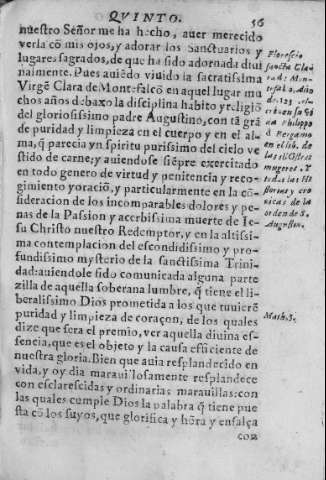 QVINTO. 56
nuestro Señor me ha hecho, auer merecido
verla cõ mis ojos, y adorar los Sanctuarios y
lugares sagrados, de que ha sido adornada diui
nalmente. Pues auiẽdo viuido la sacratissima
Virgẽ Clara de Montefalcó en aquel lugar mu
chos años debaxo la disciplina habito y religiõ
del gloriosissimo padre Augustino, con tã grã
de puridad y limpieza en el cuerpo y en el al-
ma, q̃ parecia yn spiritu purissimo del cielo ve
stido de carne; y auiendose siẽpre exercitado
en todo genero de virtud y penitencia y reco-
gimiento yoraciõ, y particularmente en la cõ-
sideracion de los incomparables dolores y pe-
nas de la Passion y acerbissima muerte de Ie-
su Christo nuestro Redemptor, y en la altissi-
ma contemplacion del escondidissimo y pro-
fundissimo mysterio de la sanctissima Trini-
dad: auiendole sido comunicada alguna parte
zilla de aquella soberana lumbre, q̃ tiene el li-
beralissimo Dios prometida a los que tuuierẽ
puridad y limpieza de coraçon, de los quales
dize que sera el premio, ver aquella diuina es-
sencia, que es el objeto y la causa efficiente de
nuestra gloria. Bien que auia resplandecido en
vida, y oy dia marauillosamente resplandece
con esclarescidas y ordinarias marauillas: con
las quales cumple Dios la palabra q̃ tiene pue
sta cõ los suyos, que glorifica y hõra y ensalça
con
Florescio
sancta Cla
ra de Mon-
tefalcó. Año
de 123
criuen su vi
da Philippo
de Bergamo
en el lib. de
las illustres
mugeres. Y
todas las Hi
storias y cro
nicas de la
orden de S.
Augustin.
Math. 5.